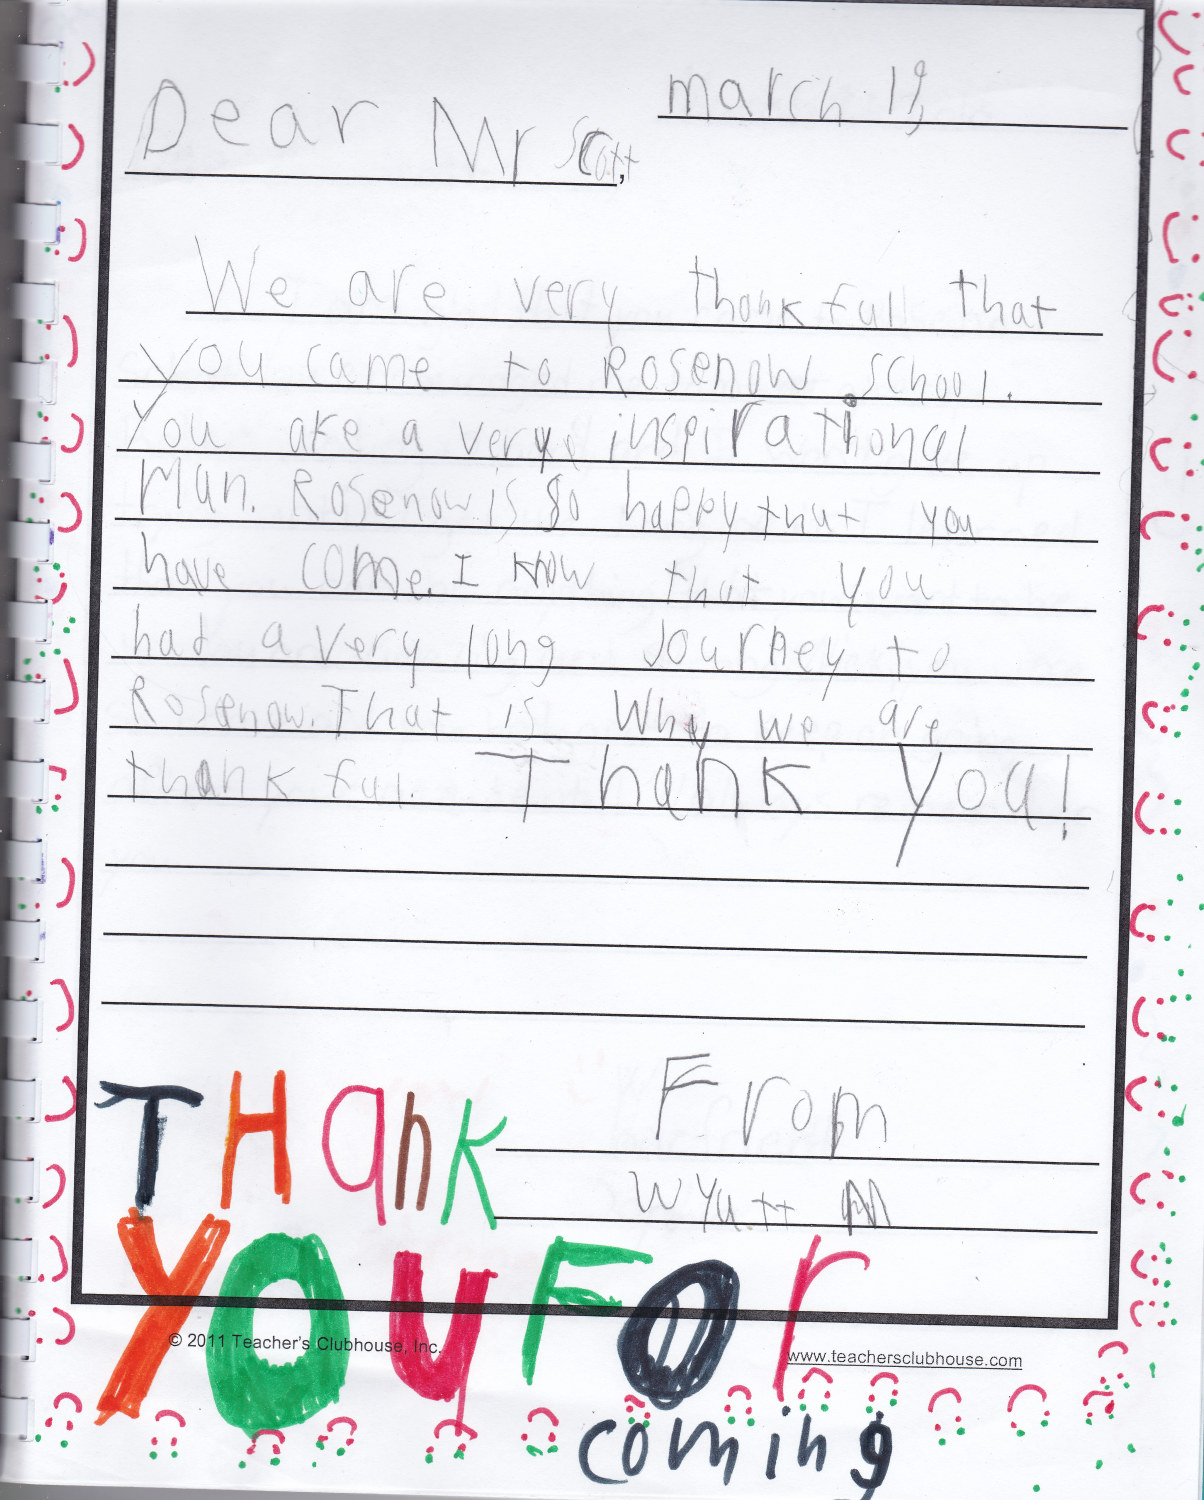 march 19,
Dear Mr Scott,
We are very thankfull that
you came to Rosenow school.
You are a very inspirational
Man. Rosenow is so happy that you
have come. I know that you
had a very long Journey to
Rosenow. That is Why we are
thankful. Thank you!
From
Wyatt M
THank
YOU FOr
coming
© 2011 Teacher's Clubhouse, Inc.
www.teachersclubhouse.com